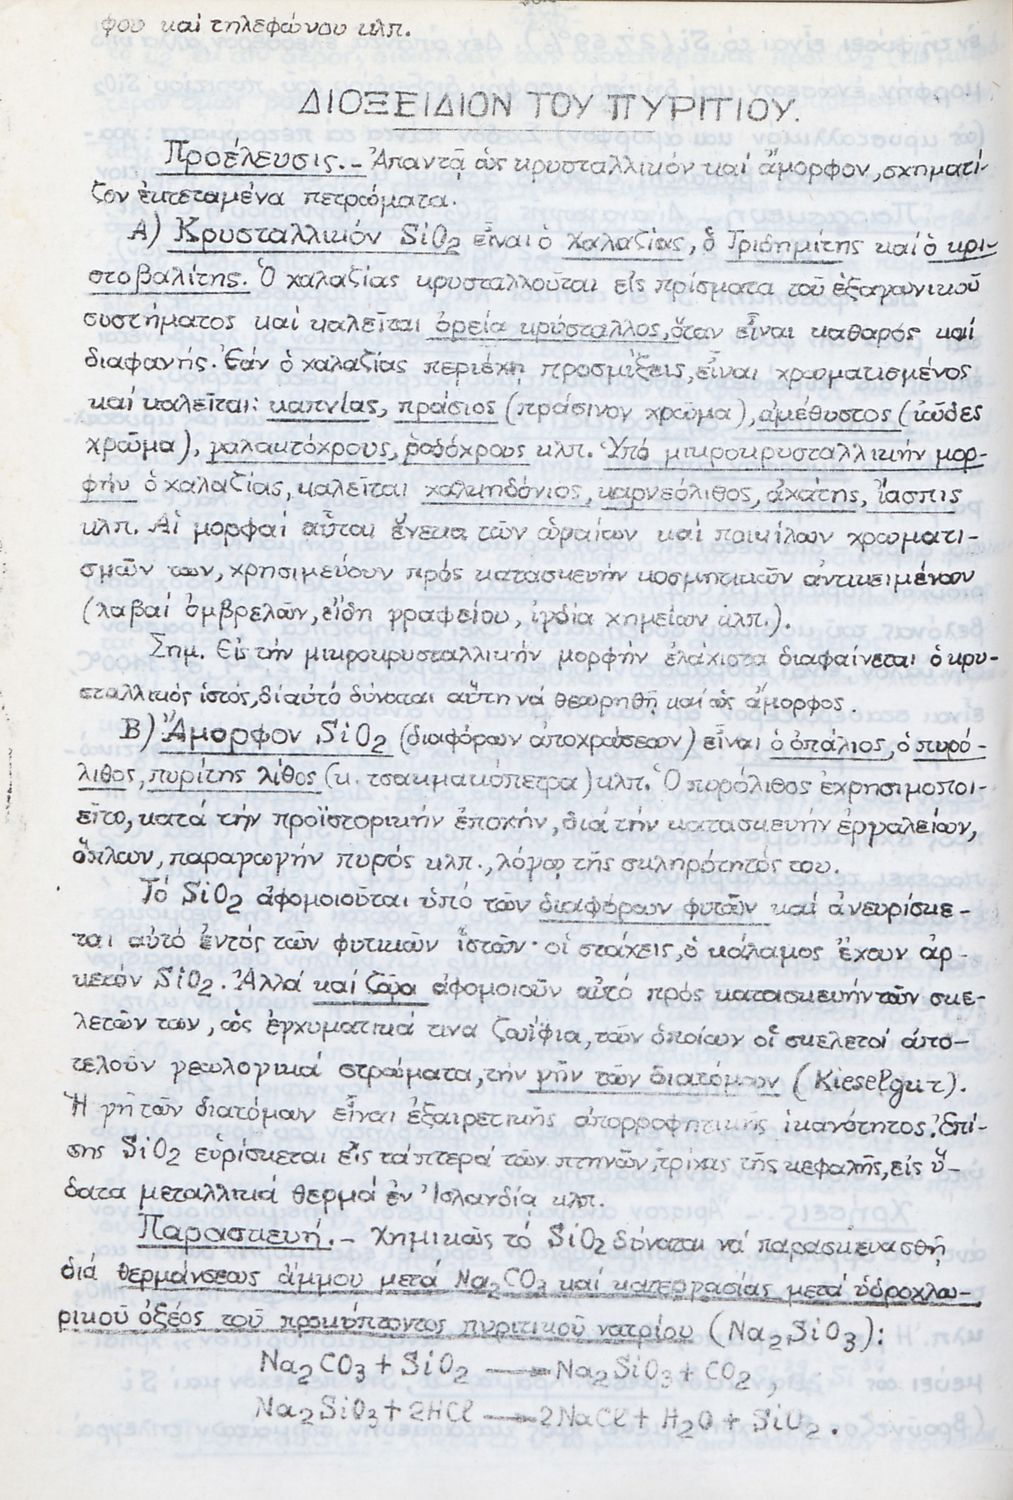 φου καί τηλεφώνου κλπ.
ΔΙΟΞΕΙΔΙΟΝ ΤΟΥ ΠΥΡΙΤΙΟΥ.
Προέλευσις.- Ἀπαντᾷ ὡς κρυσταλλικόν καί ἄμορφον, σχηματί-
ζον ἐκτεταμένα πετρώματα.
Α) Κρυσταλλικόν SiO2 εἶναι ὁ χαλαζίας, ὁ Τριδημίτης καί ὁ κρι-
στοβαλίτης. Ὁ χαλαζίας κρυσταλλοῦται εἰς πρίσματα τοῦ ἑξαγωνικοῦ
συστήματος καί καλεῖται ὀρεία κρύσταλλος, ὅταν εἶναι καθαρός καί
διαφανής. Ἐάν ὁ χαλαζίας περιέχῃ προσμίξεις, εἶναι χρωματισμένος
καί καλεῖται: καπνίας, πράσιος (πράσινον χρῶμα), ἀμέθυστος (ἰῶδες
χρῶμα), γαλακτόχρους, ῥοδόχρους κλπ. Ὑπό μικροκρυσταλλικήν μορ-
φήν ὁ χαλαζίας, καλεῖται χαλκηδόνιος, καρνεόλιθος, ἀχάτης, ἴασπις
κλπ. Αἱ μορφαί αὗται ἕνεκα τῶν ὡραίων καί ποικίλων χρωματι-
σμῶν των, χρησιμεύουν πρός κατασκευήν κοσμητικῶν ἀντικειμένων
(λαβαί ὀμβρελῶν, εἴδη γραφείου, ἰγδία χημείων κλπ.).
Σημ. Εἰς τήν μικροκρυσταλλικήν μορφήν ἐλάχιστα διαφαίνεται ὁ κρυ-
σταλλικός ἱστός, δι' αὐτό δύναται αὕτη νά θεωρηθῇ καί ὡς ἄμορφος.
Β) Ἄμορφον SiO2 (διαφόρων ἀποχρώσεων) εἶναι ὁ ὀπάλιος, ὁ πυρό-
λιθος, πυρίτης λίθος (κ. τσακμακόπετρα) κλπ. Ὁ πυρόλιθος ἐχρησιμοποι-
εῖτο, κατά τήν προϊστορικήν ἐποχήν, διά τήν κατασκευήν ἐργαλείων,
ὅπλων, παραγωγήν πυρός κλπ., λόγῳ τῆς σκληρότητός του.
Τό SiO2 ἀφομοιοῦται ὑπό τῶν διαφόρων φυτῶν καί ἀνευρίσκε-
ται αὐτό ἐντός τῶν φυτικῶν ἱστῶν· οἱ στάχεις, ὁ κάλαμος ἔχουν ἀρ-
κετόν SiO2. Ἀλλά καί ζῶα ἀφομοιοῦν αὐτό πρός κατασκευήν τῶν σκε-
λετῶν των, ὡς ἐγχυματικά τινα ζωΐφια, τῶν ὁποίων οἱ σκελετοί ἀπο-
τελοῦν γεωλογικά στρώματα, τήν γῆν τῶν διατόμων (Kieselgur).
Ἡ γῆ τῶν διατόμων εἶναι ἐξαιρετικῆς ἀπορροφητικῆς ἱκανότητος. Ἐπί-
σης SiO2 εὑρίσκεται εἰς τά πτερά τῶν πτηνῶν, τρίχας τῆς κεφαλῆς, εἰς ὕ-
δατα μεταλλικά θερμά ἐν Ἰσλανδίᾳ κλπ.
Παρασκευή.- Χημικῶς τό SiO2 δύναται νά παρασκευασθῇ
διά θερμάνσεως ἄμμου μετά Na2CO3 καί κατεργασίας μετά ὑδροχλω-
ρικοῦ ὀξέος τοῦ προκύπτοντος πυριτικοῦ νατρίου (Na2SiO3):
Na2CO3 + SiO2 → Na2SiO3 + CO2,
Na2SiO3 + 2HCl → 2NaCl + H2O + SiO2.